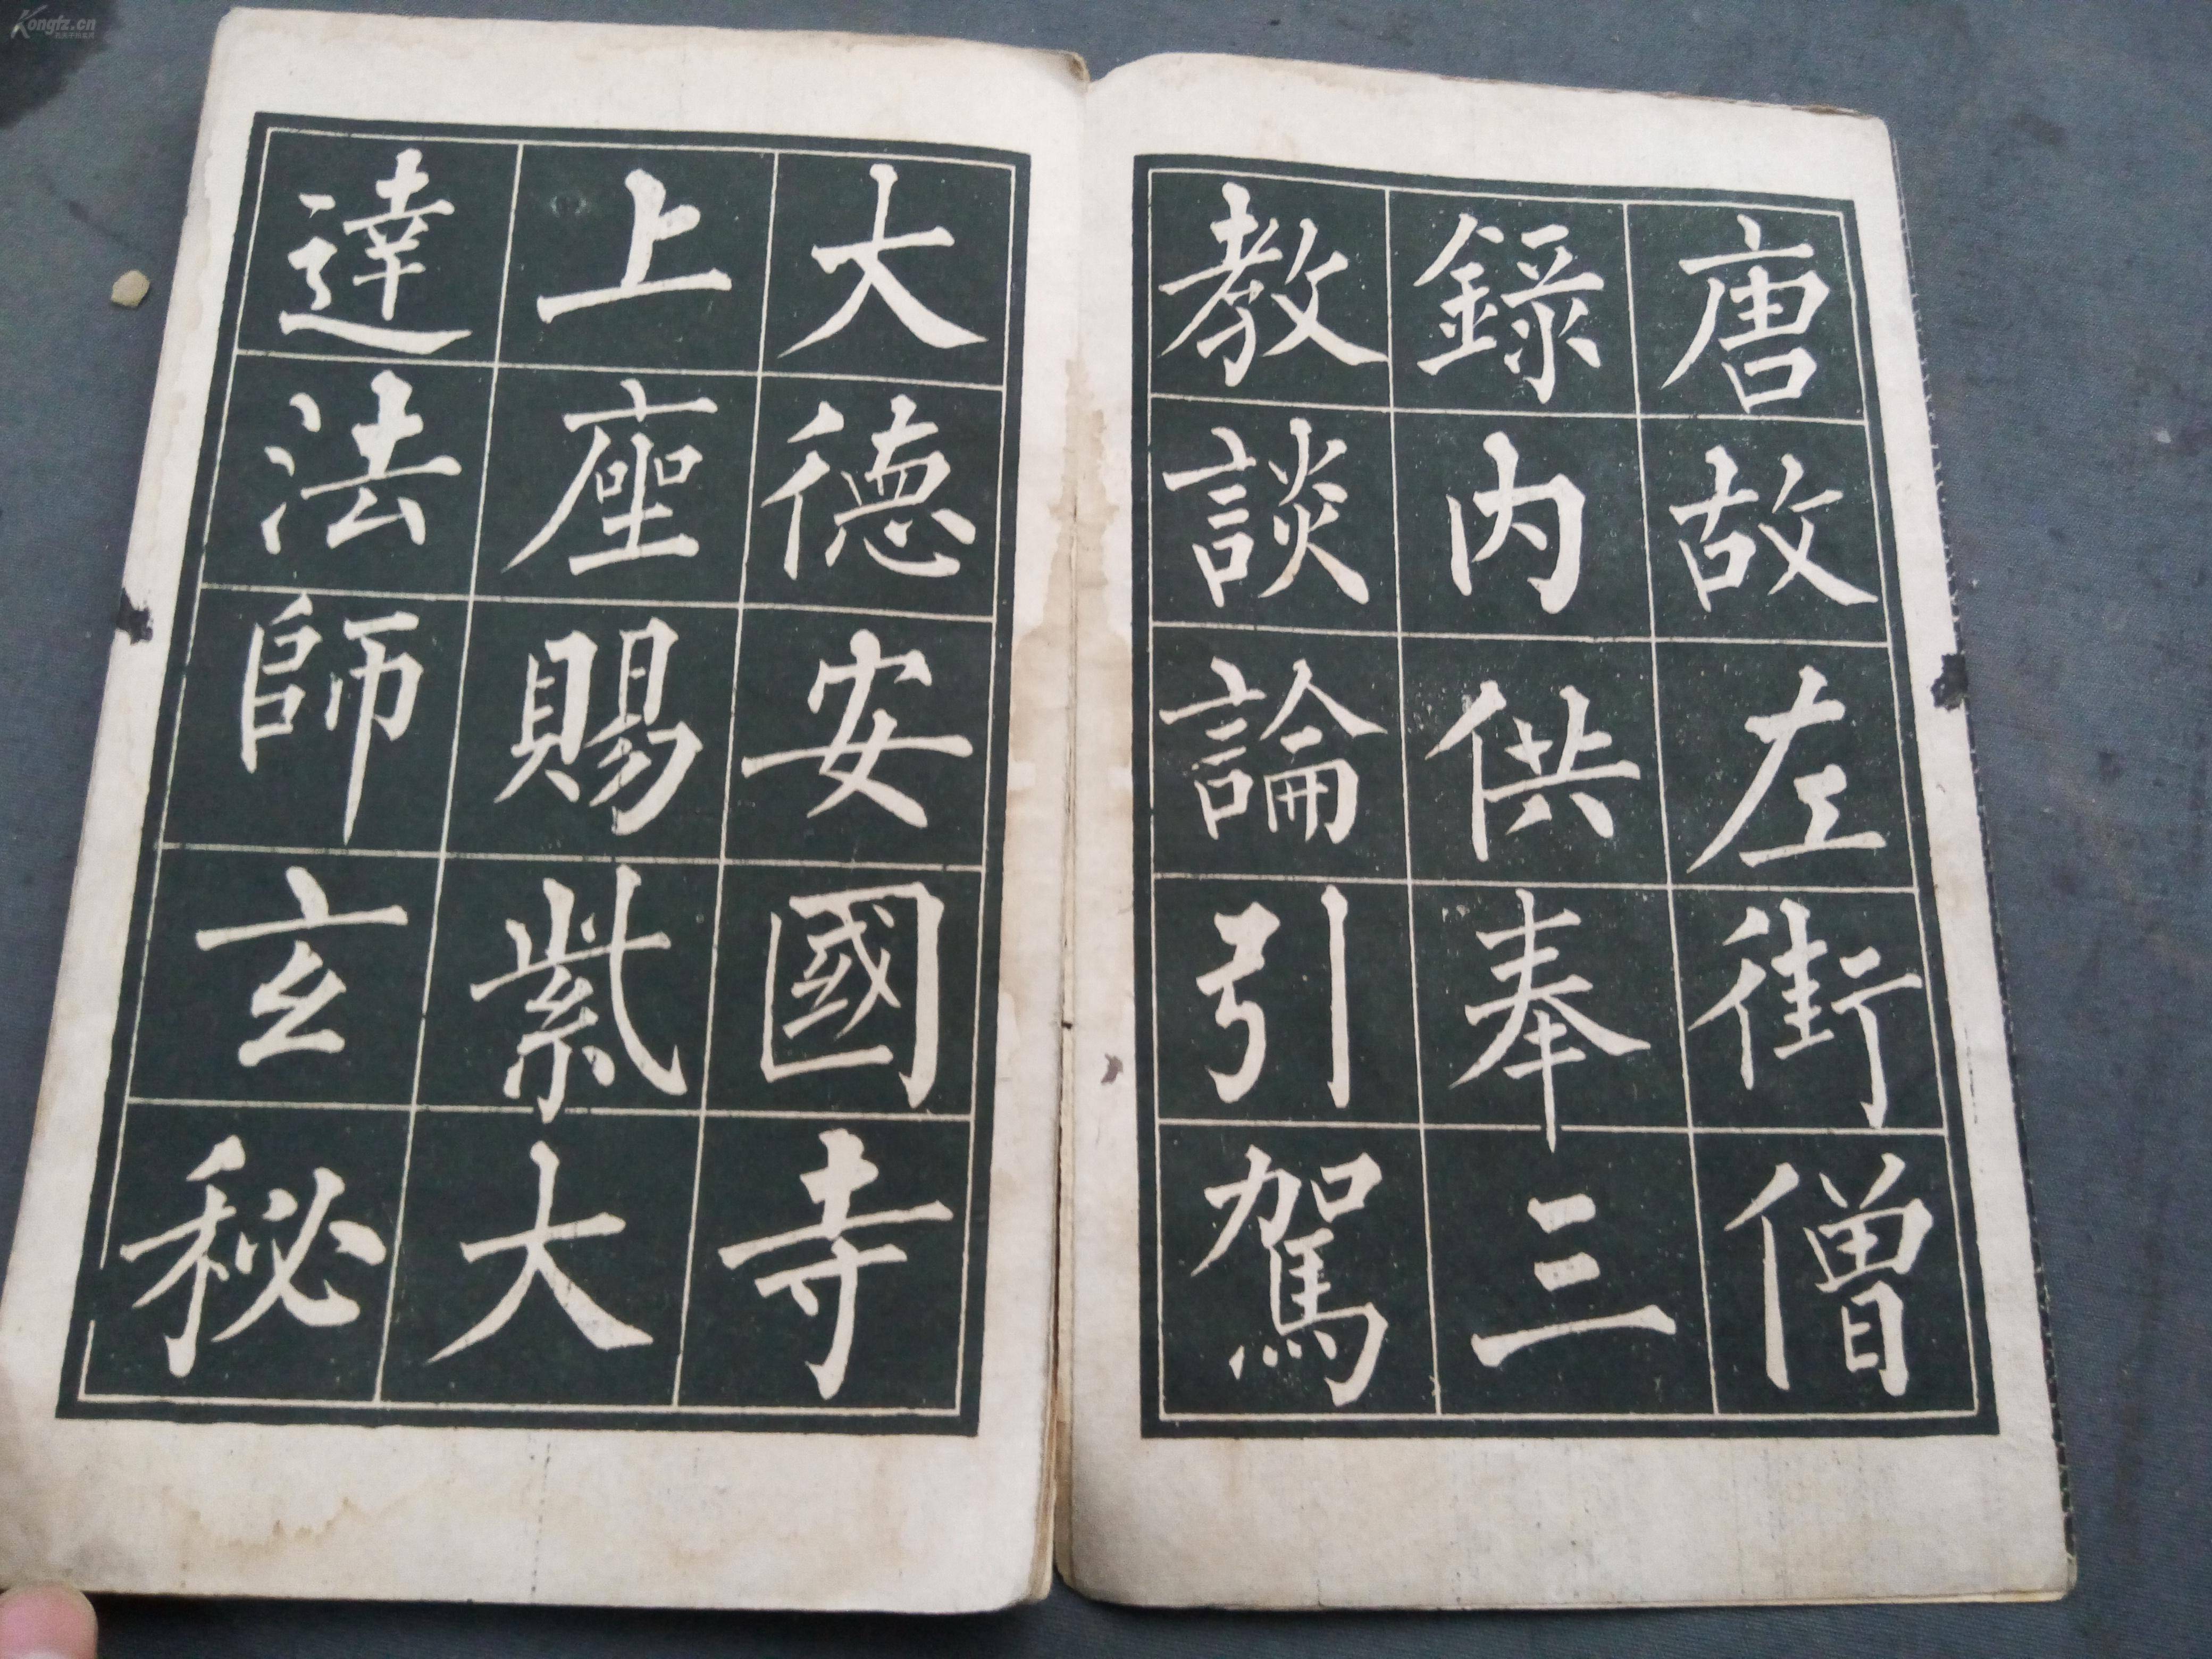 唐故左街僧
錄内供奉三
教談論引駕
大德安國寺
上座賜紫大
達法師玄秘
Kongfz.cn